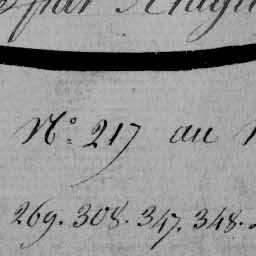 par
N.º 217 au
269. 308. 347. 348.